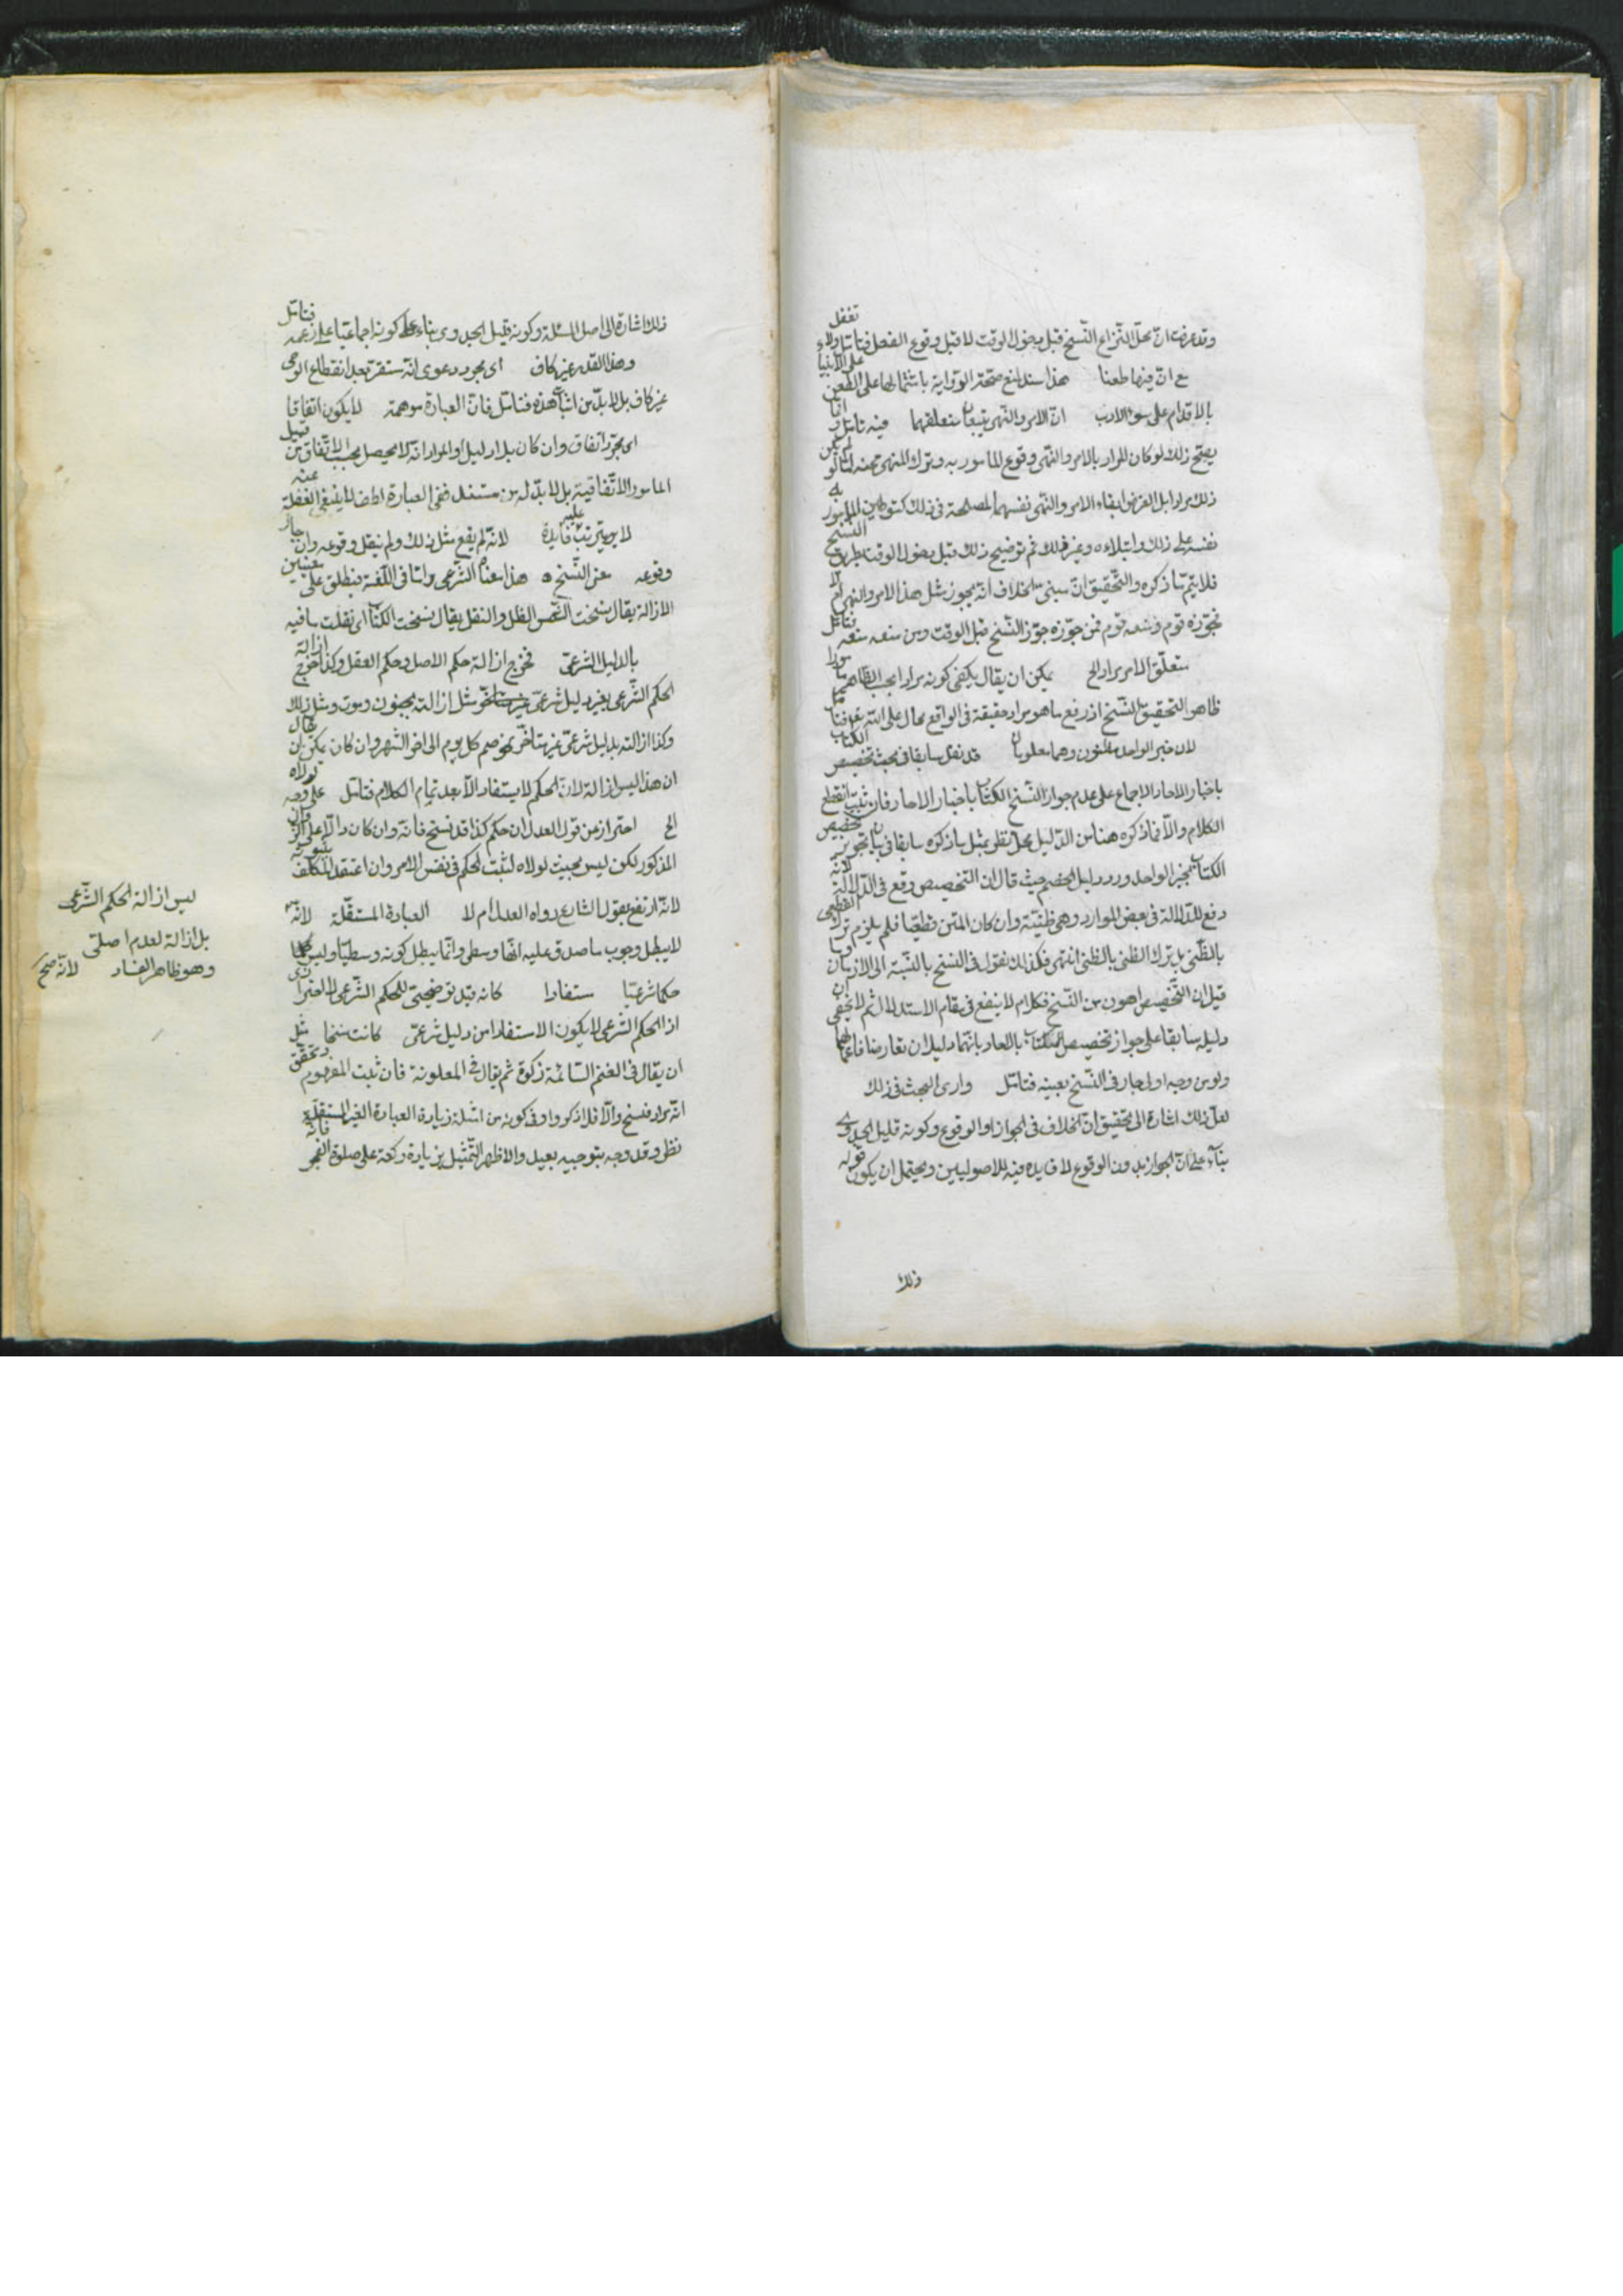 وقد عرفت ان محل النزاع النسخ قبل دخول الوقت لا قبل وقوع الفعل فتامل ولا تغفل
مع ان فيها طعنا هذا سند لمنع صحة الرواية باشتمالها على الطعن على الانبياء
بالاقدام على سوء الادب ان الامر والنهى يتبعان متعلقهما فيه تامل
يصح ذلك لو كان المراد بالامر والنهى وقوع المامور به وترك المنهى عنه
ذلك مرادا بل الغرض ايقاء الامر والنهى نفسهما لمصلحة فى ذلك كتوطين المامور به
نفسه على ذلك وابتلاءه وغير ذلك ثم توضيح ذلك قبل دخول الوقت بطريق النسخ
فلا يتم ما ذكره والتحقيق ان مبنى الخلاف انه يجوز مثل هذا الامر والنهى ام لا
فجوزه قوم ومنعه قوم فمن جوزه جوز النسخ قبل الوقت ومن منعه منعه فتامل
متعلق الامر مراد الخ يمكن ان يقال يكفى كونه مرادا بحسب الظاهر
ظاهر التحقيق النسخ اذ رفع ما هو مراد حقيقة فى الواقع محال على الله
لان خبر الواحد مظنون وهما معلومان قد نقل سابقا فى بحث تخصيص الكتاب
باخبار الاحاد الاجماع على عدم جواز النسخ الكتاب باخبار الاحاد فان ثبت انقطع
الكلام والا فما ذكره هنا من الدليل محل نظر بمثل ما ذكره سابقا فى بيان تجويز تخصيص
الكتاب بخبر الواحد ورد دليل الخصم حيث قال ان التخصيص وقع فى الدلالة لانه
دفع للدلالة فى بعض الموارد وهى ظنية وان كان المتن قطعيا فلم يلزم ترك القطعى
بالظنى بل ترك الظنى بالظنى انتهى فكذلك نقول فى النسخ بالنسبة الى الازمان
قيل ان التخصيص اهون من النسخ فكلام لا ينفع فى مقام الاستدلال ثم لا يخفى ان
دليله سابقا على جواز تخصيص الكتاب بالاحاد بانهما دليلان تعارضا فاعمالهما
ولو من وجه اولى جار فى النسخ بعينه فتامل وارى البحث فى ذلك
لعل ذلك اشارة الى تحقيق ان الخلاف فى الجواز او الوقوع وكونه قليل الجدوى
بناء على ان الجواز بدون الوقوع لا فايده فيه للاصوليين ويحتمل ان يكون قوله
ذلك
ذلك اشارة الى اصل المسئلة وكونه قليل الجدوى بناء على كونه اجماعيا على زعمه فتامل
وهذا القدر غير كاف اى مجرد دعوى انه مستقرة بعد انقطاع الوحى
غير كاف بل لا بد من اثبات هذه فتامل فان العبارة موهمة لا يكون اتفاقا
اى مجرد اتفاق وان كان بلا دليل او المراد انه لا يحصل بحسب الاتفاق من قبيل
المامور الاتفاقية بل لا بد له من مستند ففى العبارة لطف لا ينبغى الغفلة عنه
لا يترتب عليه فايدة لانه لم يقع مثل ذلك ولم ينقل وقوعه وان جاز
وقوعه معنى النسخ هذا معناه الشرعى واما فى اللغة فيطلق على معنيين
الازالة يقال نسخت الشمس الظل والنقل يقال نسخت الكتاب اى نقلت ما فيه
بالدليل الشرعى فخرج ازالة حكم الاصل وحكم العقل وكذا خرج ازالة
الحكم الشرعى بغير دليل شرعى مثل ازالته بجنون وموت ومثل ذلك
وكذا ازالته بدليل شرعى غير متاخر نحو صم كل يوم الى اخر الشهر وان كان يمكن ان يقال
ان هذا ليس ازالة لان الحكم لا يستفاد الا بعد تمام الكلام فتامل على وجه لولاه
الخ احتراز من قول العدل ان حكم كذا قد نسخ فانه وان كان دالا على
المذكور لكن ليس بحيث لولاه لثبت الحكم فى نفس الامر وان اعتقد المكلف
لانه ارتفع بقول الشارع رواه العدل ام لا العبارة المستقلة لانه
لا يبطل وجوب ما صدق عليه انها وسطى وانما يبطل كونه وسطيا وليس حكما
حكما شرعيا مستفادا كانه قيد توضيحى للحكم الشرعى لا احترازى
اذ الحكم الشرعى لا يكون الا مستفادا من دليل شرعى كانت نسخا مثل
ان يقال فى الغنم السائمة زكوة ثم يقال فى المعلوفة فان ثبت المفهوم وتحقق
انه مراد فنسخ والا فلا ذكروا وفى كونه من امثلة زيادة العبارة الغير المستقلة
نظر وقد وجه بتوجيه بعيد والاظهر التمثيل بزيادة ركعة على صلوة الفجر فانه
ليس ازالة الحكم الشرعى
بل ازالة لعدم اصلى
وهو ظاهر الفساد لانه صح